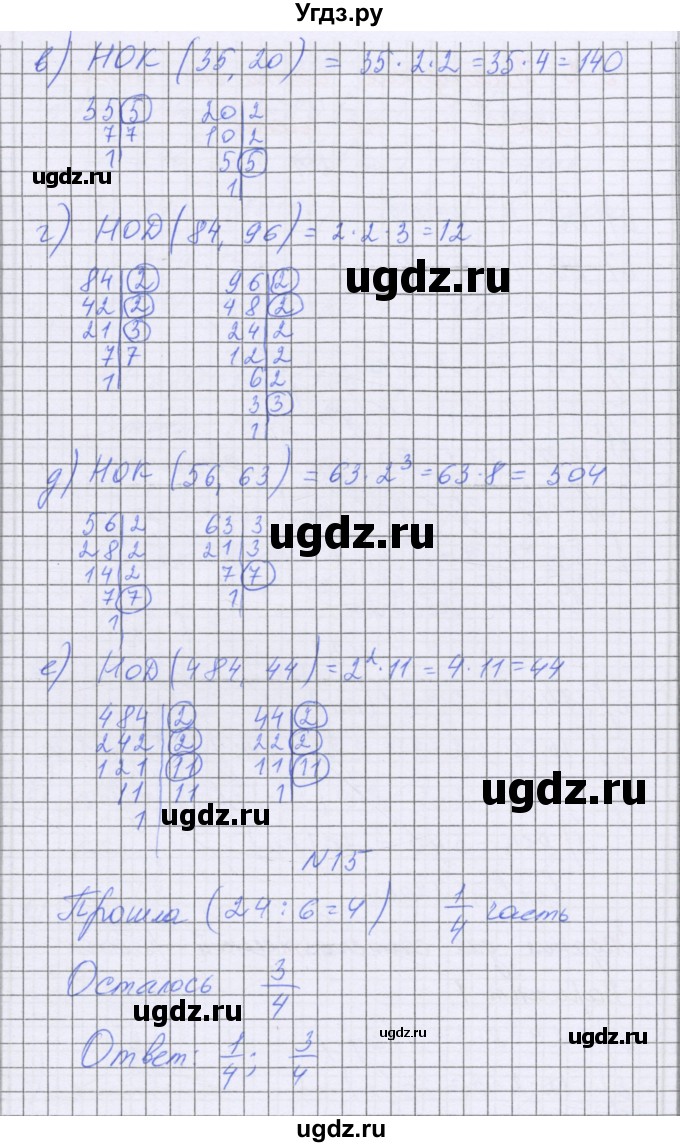 Угдз.ру
в) НОК (35, 20) = 35·2·2=35·4=140
35|5 20|2
7|7 10|2
1| 5|5
1|
ugdz.ru
г) НОД(84, 96)=2·2·3=12
ugdz.ru
84|2 96|2
42|2 48|2
21|3 24|2
7|7 12|2
1| 6|2
3|3
1|
д) НОК (56, 63) = 63·2³=63·8= 504
ugdz.ru
56|2 63|3
28|2 21|3
14|2 7|7
7|7 1|
1|
е) НОД(484, 44)=2²·11=4·11=44
484|2 44|2
242|2 22|2
121|11 11|11
11|11 1|
1|
ugdz.ru
ugdz.ru
N15
Прошла (24:6=4) 1/4 часть
Осталось 3/4
ugdz.ru
ugdz.ru
ugdz.ru
Ответ: 1/4; 3/4
ugdz.ru